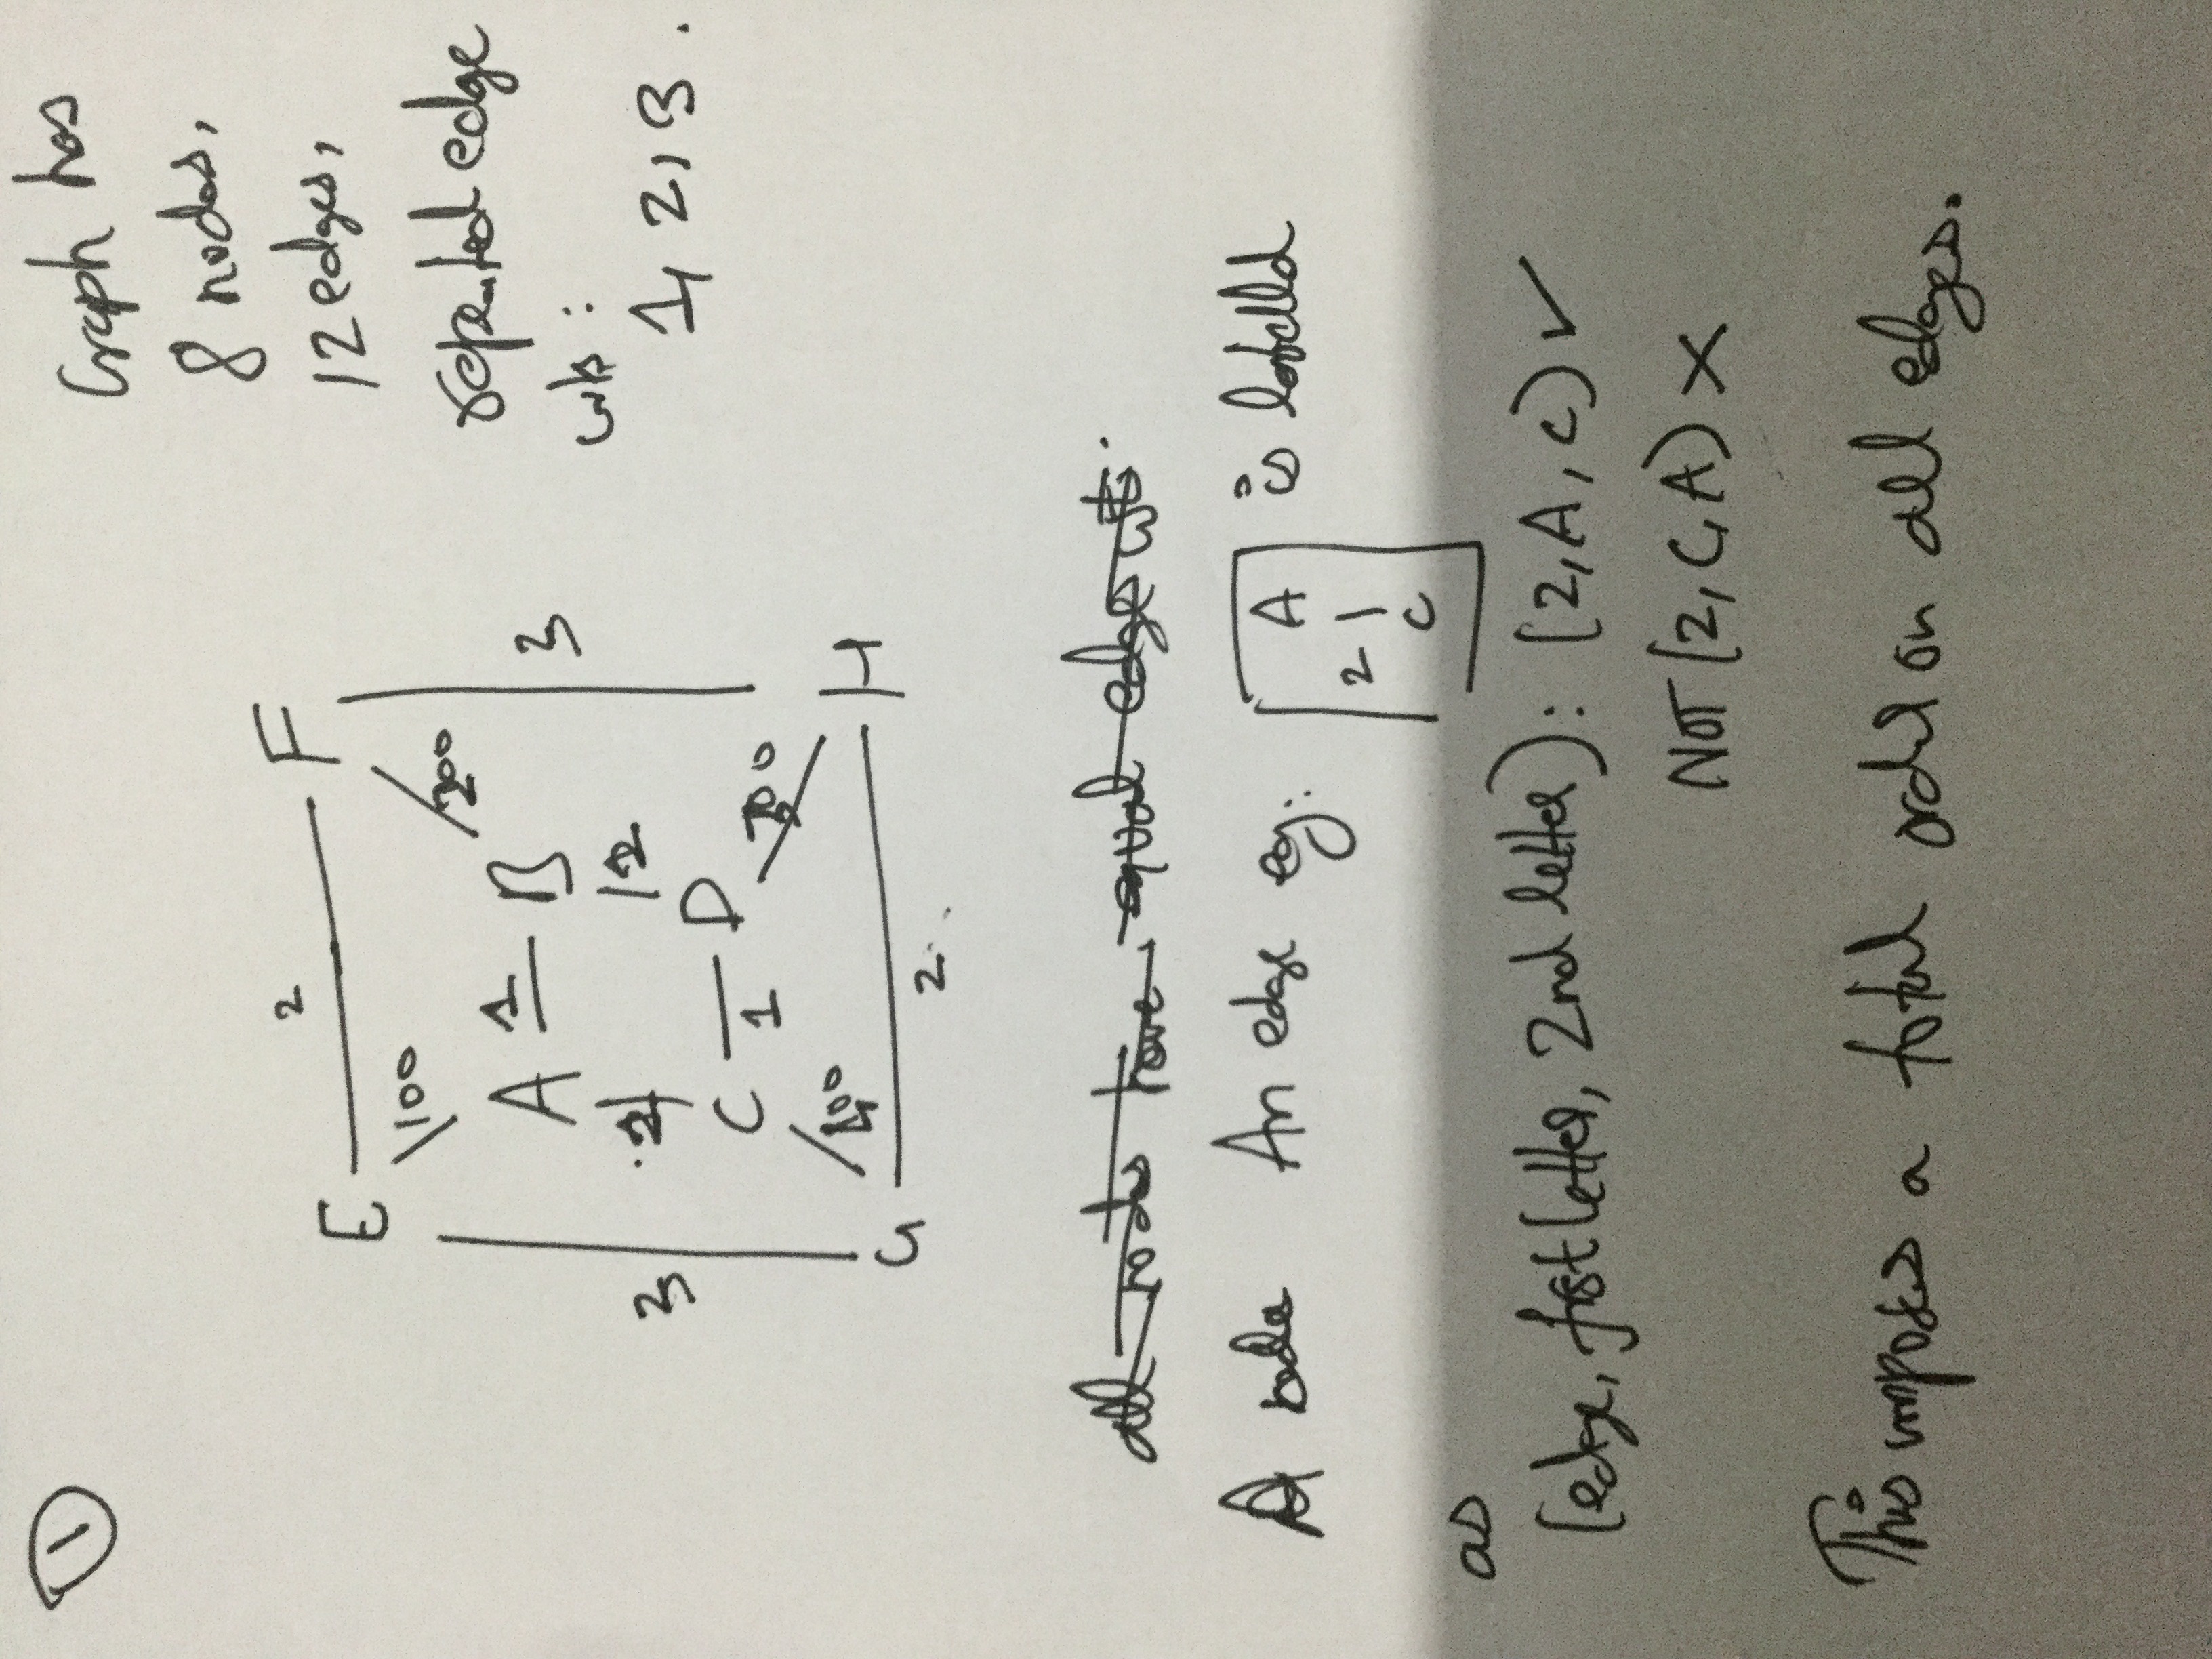 ①
Graph has
8 nodes,
12 edges,
repeated edge
wts:
1, 2, 3.
E 2 F
100 200
A 1 B
3 2 2 3
C 1 D
400 300
G 2 H
all nodes have equal edge wts.
A node An edge eg: A 2 C is labelld
as
(edge, first letter, 2nd letter): (2, A, C) ✓
NOT (2, C, A) ×
This imposes a total order on all edges.